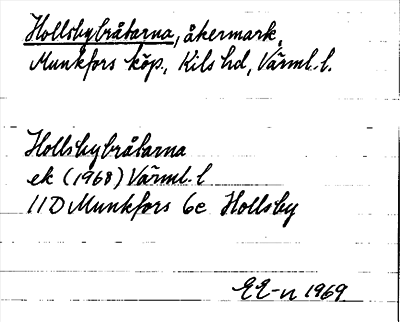 Hollsbybråtarna, åkermark,
Munkfors köp., Kils hd, Värml. l.
Hollsbybråtarna
ek (1968) Värml. l
11D Munkfors 6e Hollsby
EE-n 1969